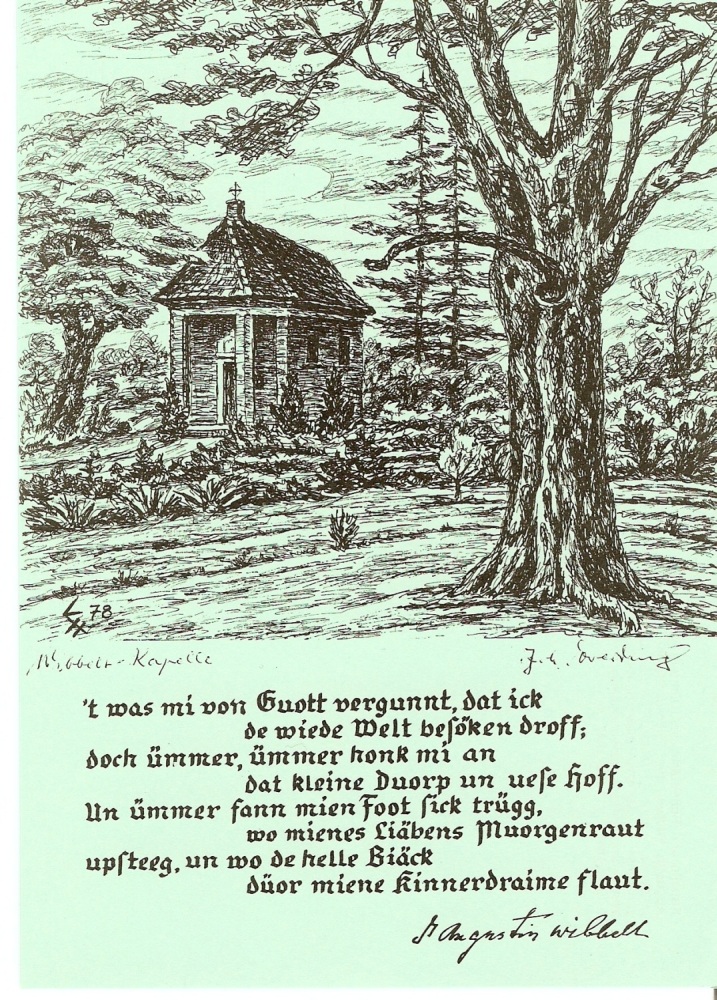 78
Wibbelt-Kapelle
't was mi von Guott vergunnt, dat ick
de wiede Welt besöken droff;
doch ümmer, ümmer honk mi an
dat kleine Duorp un uese Hoff.
Un ümmer fann mien Foot sick trügg,
wo mienes Liäbens Muorgenraut
upsteeg, un wo de helle Biäck
düor miene Kinnerdraime flaut.
Augustin Wibbelt